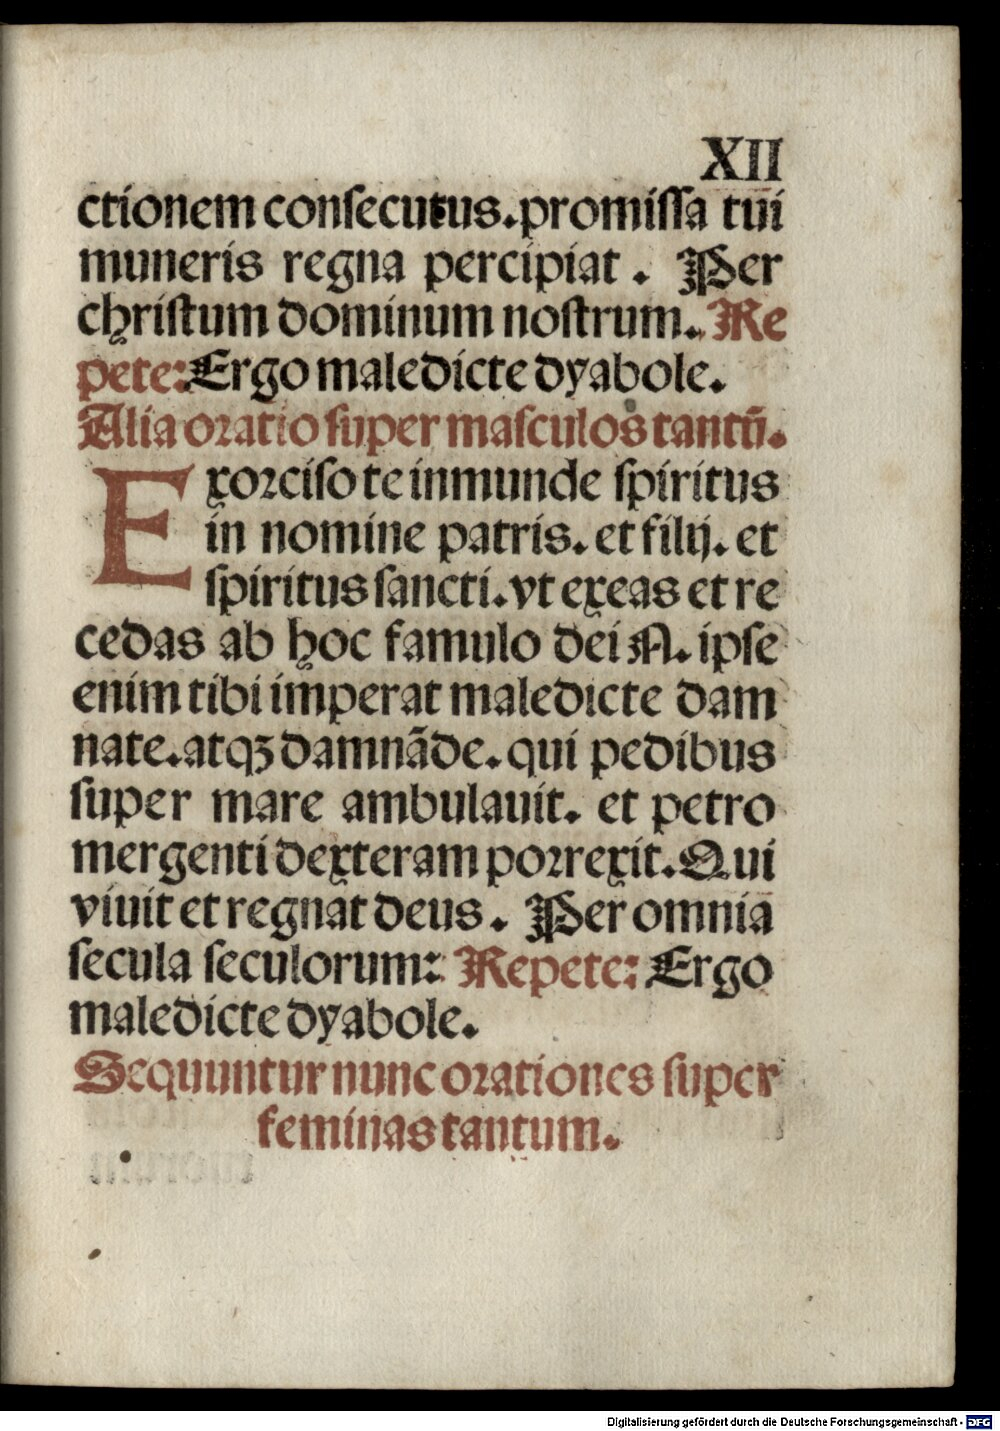 XII
ctionem consecutus.promissa tui
muneris regna percipiat. Per
christum dominum nostrum. Re
pete: Ergo maledicte dyabole.
Alia oratio super masculos tantũ.
Exorciso te inmunde spiritus
in nomine patris. et filij. et
spiritus sancti. vt exeas et re
cedas ab hoc famulo dei N. ipse
enim tibi imperat maledicte dam
nate. atqꝫ damnãde. qui pedibus
super mare ambulauit. et petro
mergenti dexteram porrexit. Qui
viuit et regnat deus. Per omnia
secula seculorum: Repete: Ergo
maledicte dyabole.
Sequuntur nunc orationes super
feminas tantum.
Digitalisierung gefördert durch die Deutsche Forschungsgemeinschaft - DFG